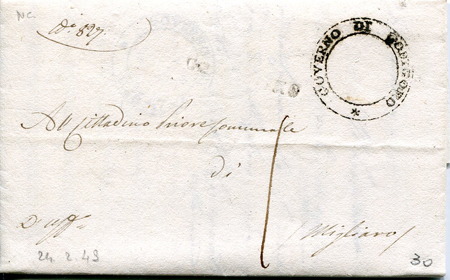 NC.
N.° 827.
GOVERNO DI
*
Al Cittadino Priore Comunale
di
Migliaro
D'uff.°
24. 2. 49
30